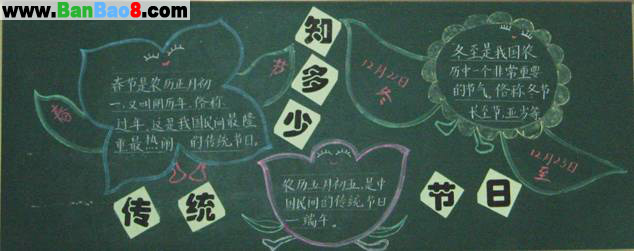 www.BanBao8.com
知多少
传统
节日
春
节
春节是农历正月初
一,又叫阴历年,俗称
过年,这是我国民间最隆
重最热闹的传统节日。
农历五月初五,是中
国民间的传统节日
—端午。
12月22日
冬
冬至是我国农
历中一个非常重要
的节气,俗称冬节
长至节,亚岁等
12月23日
至